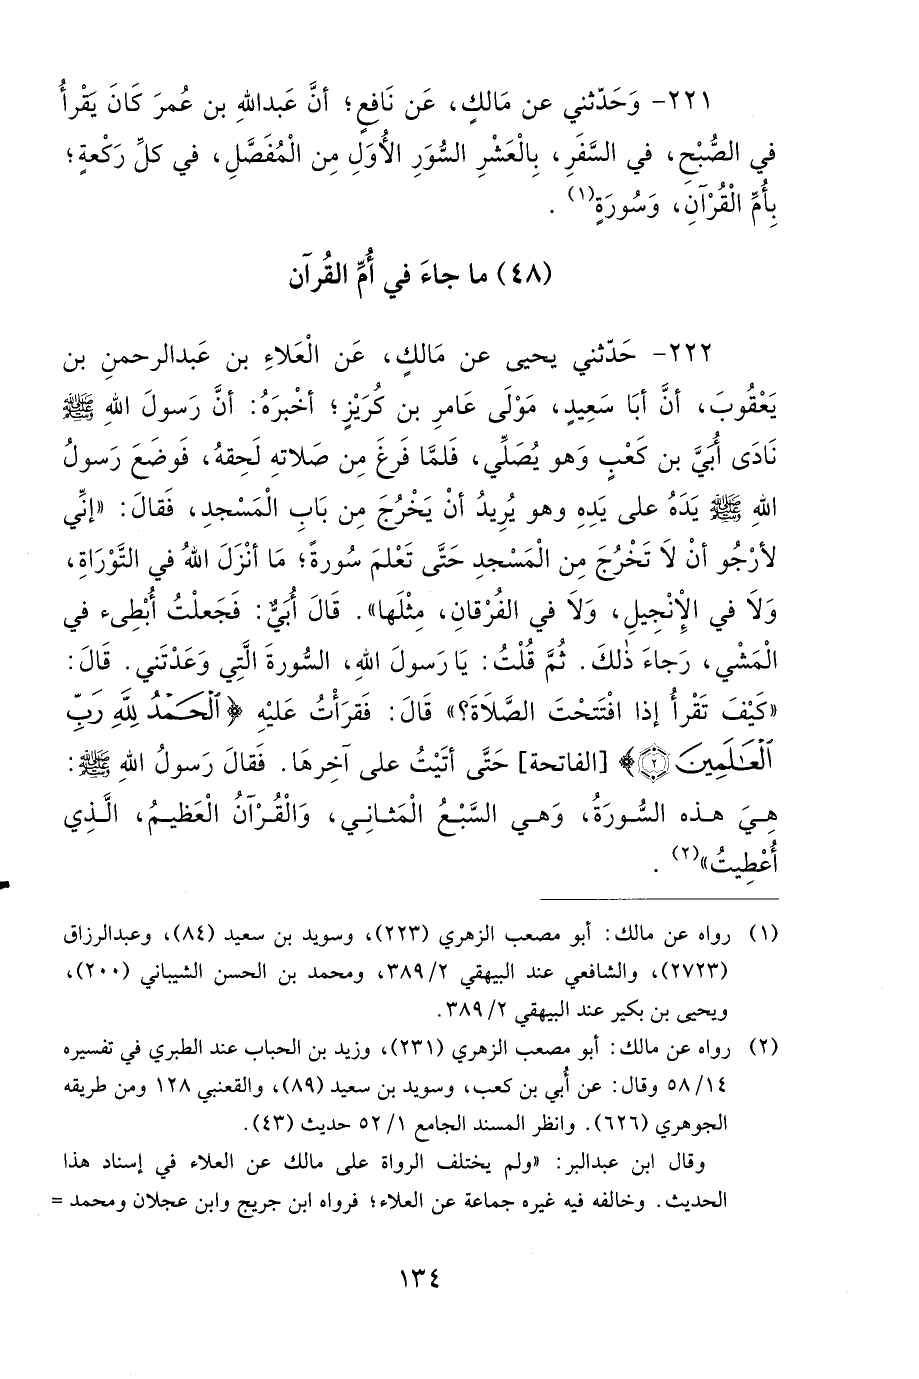 ٢٢١- وَحَدّثني عن مَالكٍ، عَن نَافعٍ؛ أنَّ عَبدالله بن عُمرَ كَانَ يَقْرأُ
في الصُّبْحِ، في السَّفَرِ، بِالْعَشْرِ السُّوَرِ الأُوَلِ مِن الْمُفَصَّلِ، في كلِّ رَكْعةٍ؛
بِأُمِّ الْقُرْآنِ، وَسُورَةٍ(١) .
(٤٨) ما جاءَ في أُمِّ القُرآن
٢٢٢- حَدّثني يحيى عن مَالكٍ، عَن الْعَلاءِ بن عَبدالرحمنِ بن
يَعْقُوبَ، أنَّ أبَا سَعِيدٍ، مَوْلَى عامرِ بن كُرَيْزٍ؛ أخْبرَهُ: أنَّ رَسولَ اللهِ ﷺ
نَادَى أُبَيَّ بن كَعْبٍ وَهو يُصَلِّي، فَلمَّا فَرغَ مِن صَلاتهِ لَحِقهُ، فَوضَعَ رَسولُ
اللهِ ﷺ يَدَهُ على يَدِهِ وهو يُرِيدُ أنْ يَخْرُجَ مِن بَابِ الْمَسْجدِ، فَقالَ: «إنِّي
لأرْجُو أنْ لاَ تَخْرُجَ مِن الْمَسْجدِ حَتَّى تَعْلمَ سُورةً؛ مَا أنْزَلَ اللهُ في التَّوْرَاةِ،
وَلاَ في الإنْجيلِ، وَلاَ في الفُرْقانِ، مِثْلَها». قَالَ أُبَيٌّ: فَجَعلْتُ أُبْطِىء في
الْمَشْيِ، رَجاءَ ذٰلكَ. ثُمَّ قُلْتُ: يَا رَسولَ اللهِ، السُّورةَ الَّتِي وَعَدْتَني. قَالَ:
«كَيْفَ تَقْرأُ إذا افْتتَحْتَ الصَّلاَةَ؟» قَالَ: فَقرَأْتُ عَليْهِ ﴿ٱلْحَمْدُ لِلَّهِ رَبِّ
ٱلْعَـٰلَمِينَ ۝٢﴾ [الفاتحة] حَتَّى أتيْتُ على آخِرِهَا. فَقالَ رَسولُ اللهِ ﷺ:
هِيَ هـذه السُّورَةُ، وَهـي السَّبْعُ الْمَثـانِـي، وَالْقُـرْآنُ الْعَظِيـمُ، الَّـذِي
أُعْطِيتُ»(٢) .
(١) رواه عن مالك: أبو مصعب الزهري (٢٢٣)، وسويد بن سعيد (٨٤)، وعبدالرزاق
(٢٧٢٣)، والشافعي عند البيهقي ٢/ ٣٨٩، ومحمد بن الحسن الشيباني (٢٠٠)،
ويحيى بن بكير عند البيهقي ٢/ ٣٨٩.
(٢) رواه عن مالك: أبو مصعب الزهري (٢٣١)، وزيد بن الحباب عند الطبري في تفسيره
١٤/ ٥٨ وقال: عن أُبي بن كعب، وسويد بن سعيد (٨٩)، والقعنبي ١٢٨ ومن طريقه
الجوهري (٦٢٦). وانظر المسند الجامع ١/ ٥٢ حديث (٤٣).
وقال ابن عبدالبر: «ولم يختلف الرواة على مالك عن العلاء في إسناد هذا
الحديث. وخالفه فيه غيره جماعة عن العلاء؛ فرواه ابن جريج وابن عجلان ومحمد =
١٣٤